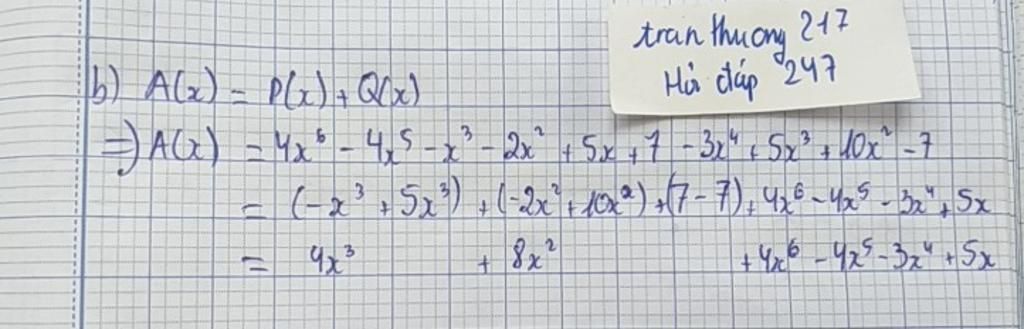 tranthuong 217
Hỏi đáp 247
b) A(x) = P(x) + Q(x)
=> A(x) = 4x⁶ - 4x⁵ - x³ - 2x² + 5x + 7 - 3x⁴ + 5x³ + 10x² - 7
= (-x³ + 5x³) + (-2x² + 10x²) + (7 - 7) + 4x⁶ - 4x⁵ - 3x⁴ + 5x
= 4x³ + 8x² + 4x⁶ - 4x⁵ - 3x⁴ + 5x